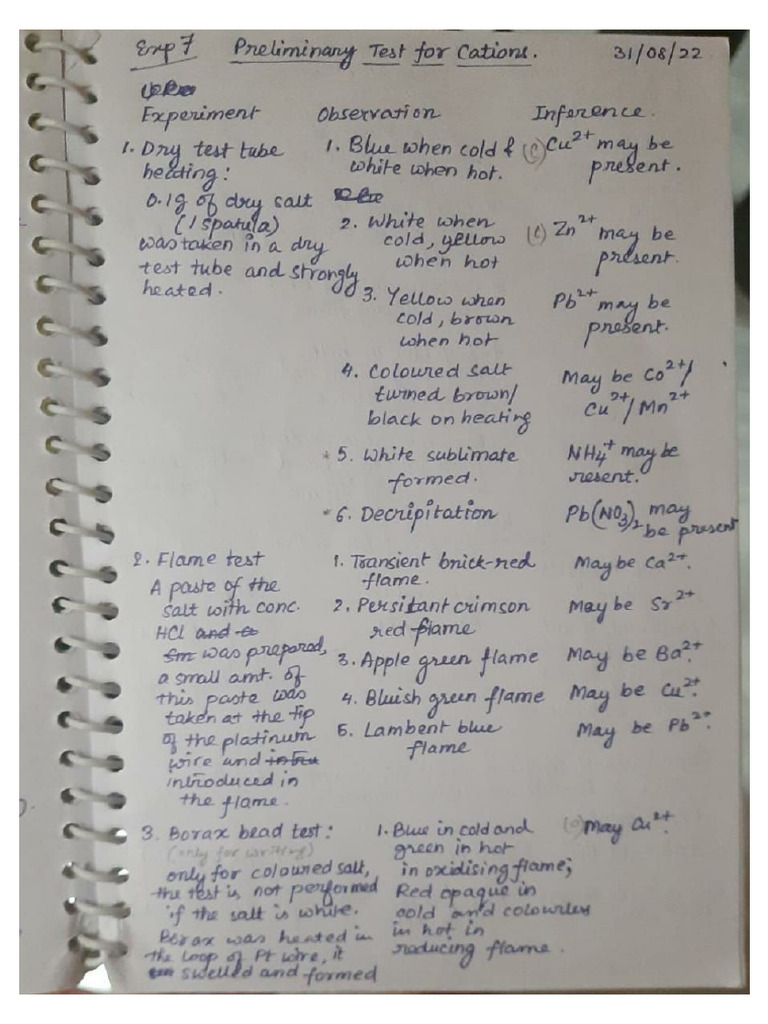 Exp 7 Preliminary Test for Cations. 31/08/22
Experiment Observation Inference.
1. Dry test tube heating:
0.1g of dry salt
(1 spatula)
was taken in a dry
test tube and strongly
heated.
1. Blue when cold &
white when hot.
(c) Cu²⁺ may be
present.
2. White when
cold, yellow
when hot
(c) Zn²⁺ may be
present.
3. Yellow when
cold, brown
when hot
Pb²⁺ may be
present.
4. Coloured salt
turned brown/
black on heating
May be Co²⁺/
Cu²⁺/Mn²⁺
* 5. White sublimate
formed.
NH4⁺ may be
resent.
* 6. Decripitation
Pb(NO3)2 may
be present
2. Flame test
A paste of the
salt with conc.
HCl and a
sm was prepared,
a small amt. of
this paste was
taken at the tip
of the platinum
wire and intru
introduced in
the flame.
1. Transient brick-red
flame.
May be Ca²⁺.
2. Persistant crimson
red flame
May be Sr²⁺
3. Apple green flame
May be Ba²⁺.
4. Bluish green flame
May be Cu²⁺.
5. Lambent blue
flame
May be Pb²⁺.
3. Borax bead test:
(only for writing)
only for coloured salt,
the test is not performed
if the salt is white.
Borax was heated in
the loop of Pt wire, it
swelled and formed
1. Blue in cold and
green in hot
in oxidising flame;
Red opaque in
cold and colourless
in hot in
reducing flame.
(c) May Cu²⁺.